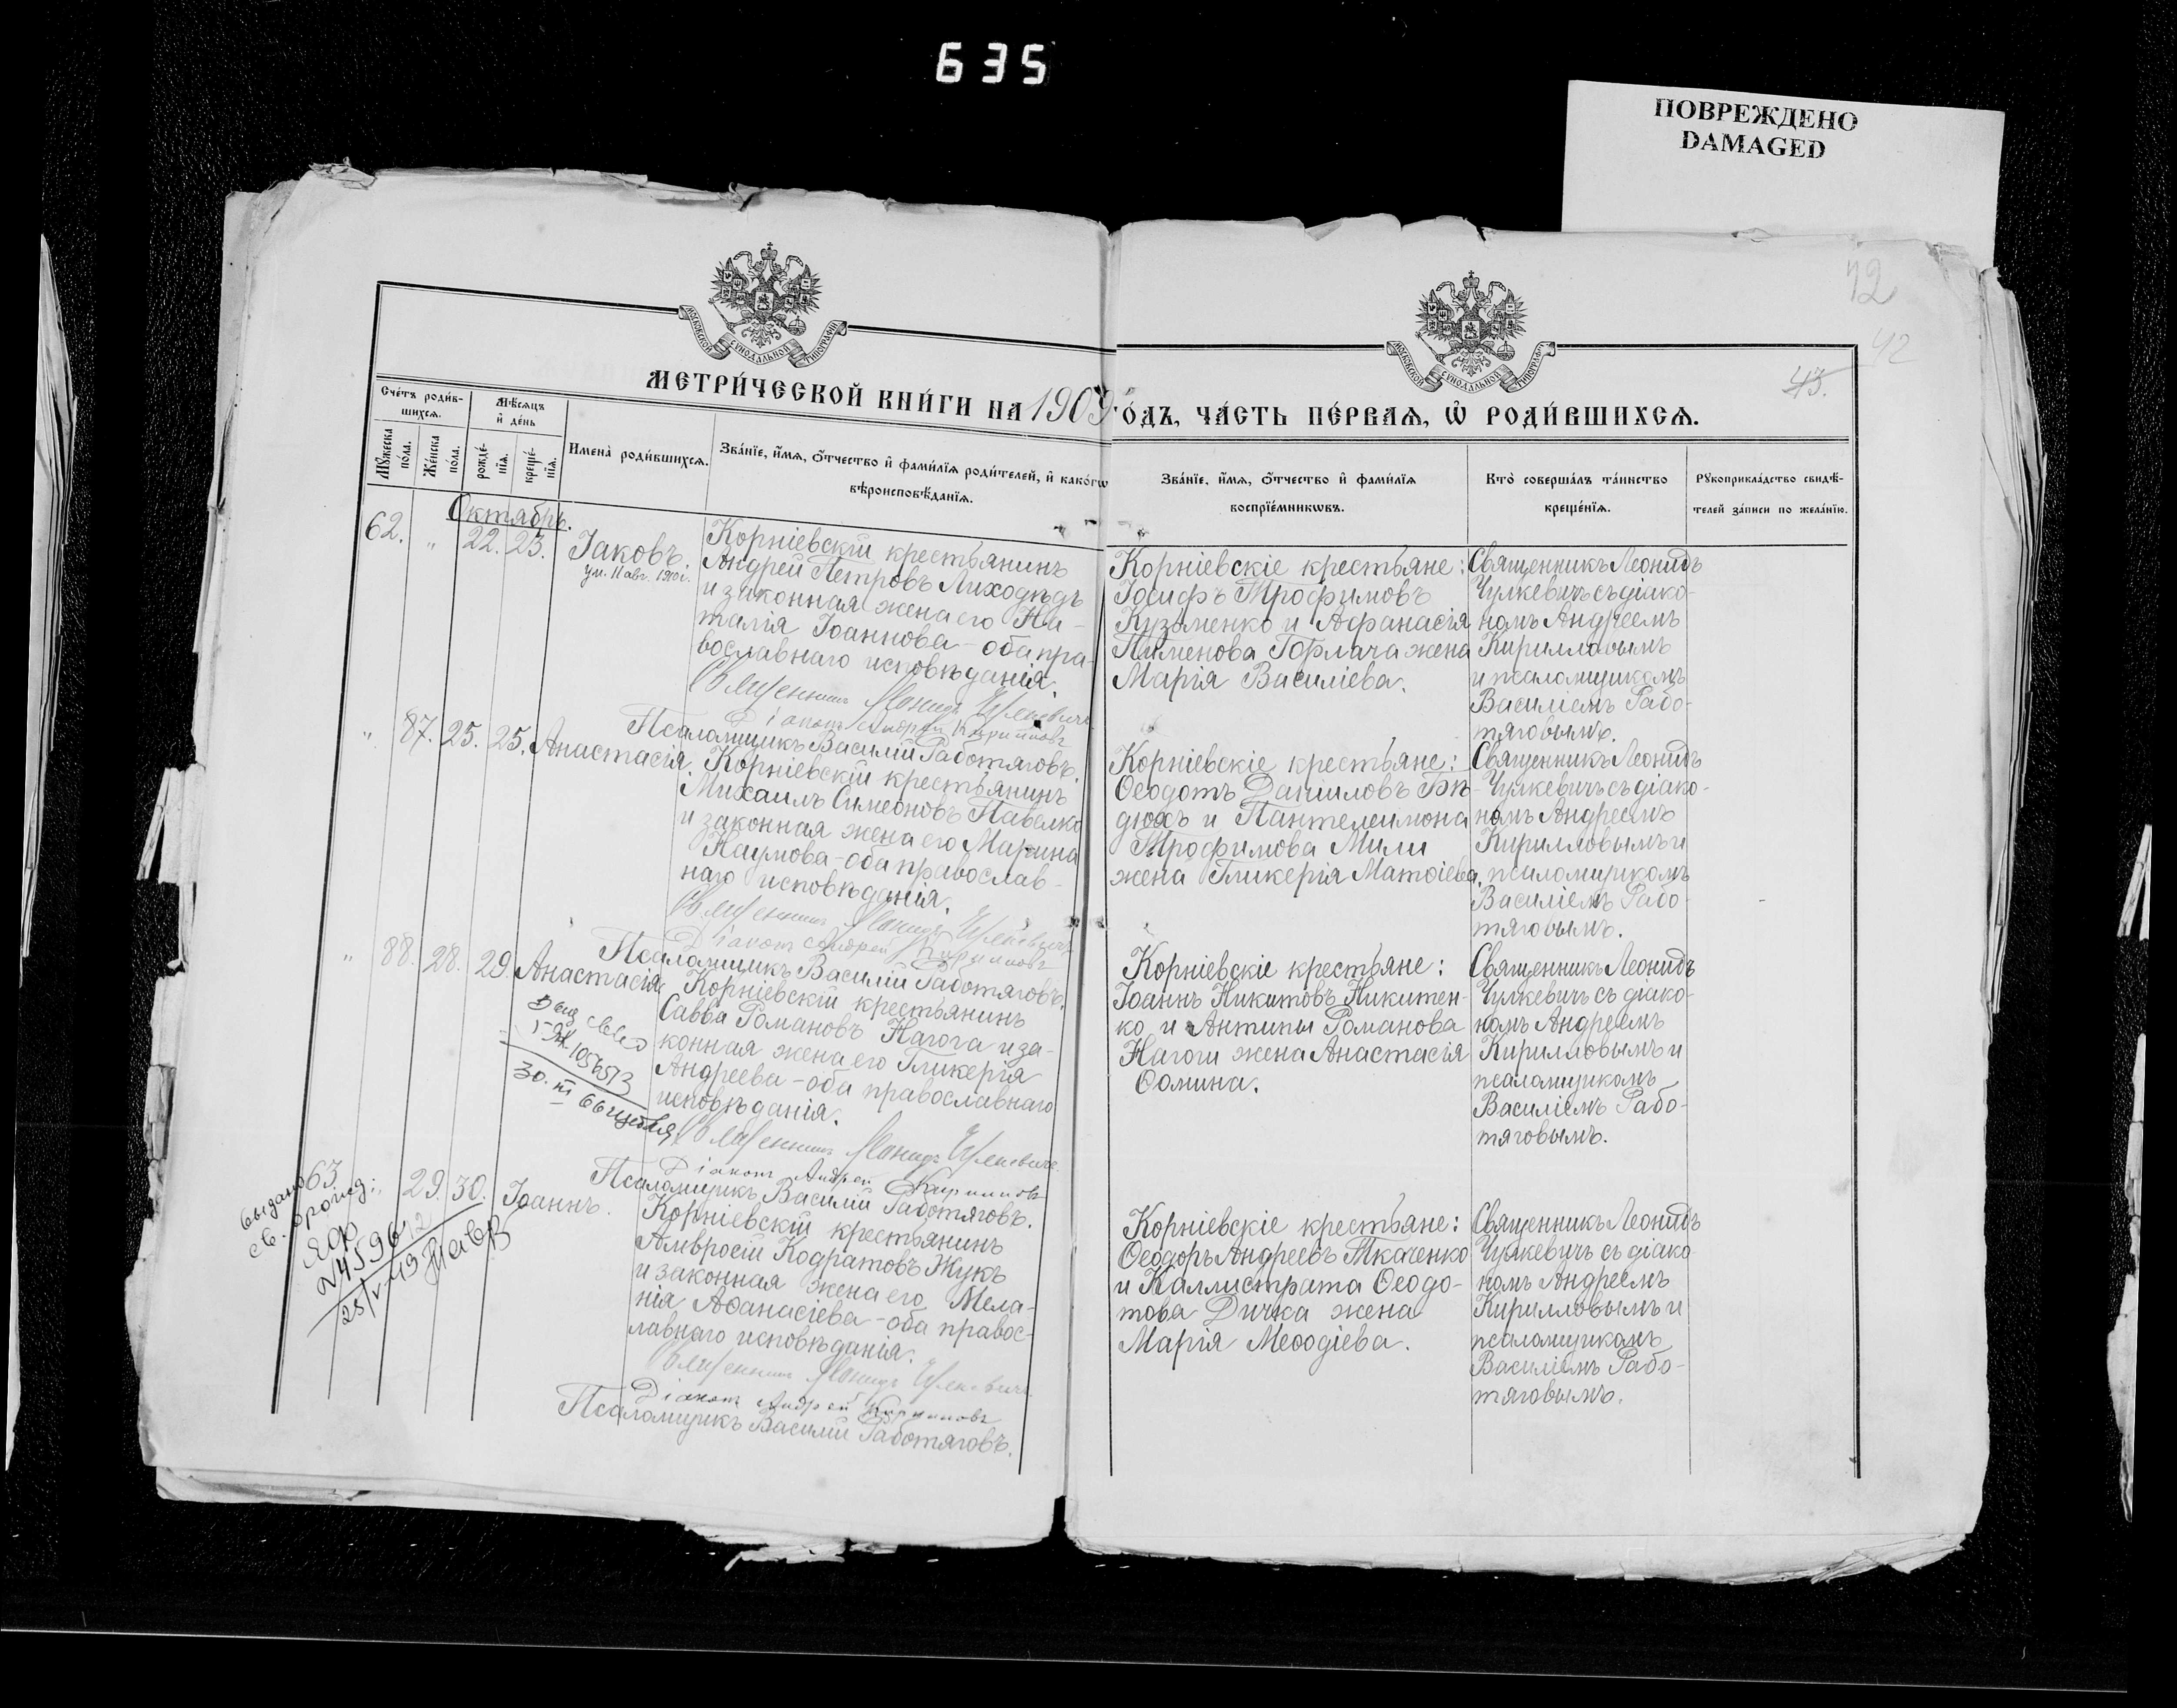 635
ПОВРЕЖДЕНО
DAMAGED
42
42
43.
МОСКОВСКОЙ СѴНОДАЛЬНОЙ ТИПОГРАФІИ
МОСКОВСКОЙ СѴНОДАЛЬНОЙ ТИПОГРАФІИ
МЕТРИ́ЧЕСКОЙ КНИ́ГИ НА 1909 ГО́ДЪ, ЧА́СТЬ ПЕ́РВАѦ, Ѽ РОДИ́ВШИХСѦ.
Сче́тъ роди́в-
шихсѧ.
Мꙋжеска
по́ла.
Же́нска
по́ла.
Мѣ́сѧцъ
и҆ де́нь
рожде́-
нїѧ.
креще́-
нїѧ.
Имена̀ роди́вшихсѧ.
Зва́нїе, и҆́мѧ, ѻ҆́тчество и҆ фами́лїѧ роди́телей, и҆ како́гѡ
вѣроисповѣ́данїѧ.
Зва́нїе, и҆́мѧ, ѻ҆́тчество и҆ фами́лїѧ
воспрїе́мникѡвъ.
Кто̀ соверша́лъ та́инство
креще́нїѧ.
Рꙋкоприкла́дство свидѣ́-
телей за́писи по жела́нїю.
Октябрь.
62. „ 22. 23. Іаковъ.
ум. 11 авг. 1910 г.
Корніевскій крестьянинъ
Андрей Петровъ Лиходѣдъ
и законная жена его На-
талія Іоаннова – оба пра-
вославнаго исповѣданія.
Священникъ Леонидъ Чулкевичъ
Діаконъ Андрей Кирилловъ
Псаломщикъ Василій Работяговъ.
Корніевскіе крестьяне:
Іосифъ Трофимовъ
Кузьменко и Афанасія
Пименова Горлача жена
Марія Василіева.
Священникъ Леонидъ
Чулкевичъ съ діако-
номъ Андреемъ
Кирилловымъ
и псаломщикомъ
Василіемъ Рабо-
тяговымъ.
„ 87. 25. 25. Анастасія.
Корніевскій крестьянинъ
Михаилъ Симеоновъ Павелко
и законная жена его Марина
Наумова – оба православ-
наго исповѣданія.
Священникъ Леонидъ Чулкевичъ
Діаконъ Андрей Кирилловъ
Псаломщикъ Василій Работяговъ.
Корніевскіе крестьяне:
Ѳеодотъ Даніиловъ Бѣ-
дюхъ и Пантелеимона
Трофимова Мили
жена Гликерія Матѳіева.
Священникъ Леонидъ
Чулкевичъ съ діако-
номъ Андреемъ
Кирилловымъ и
псаломщикомъ
Василіемъ Рабо-
тяговымъ.
„ 88. 28. 29. Анастасія
30. III 66
Корніевскій крестьянинъ
Савва Романовъ Нагога и за-
конная жена его Гликерія
Андреева – оба православнаго
исповѣданія.
Священникъ Леонидъ Чулкевичъ
Діаконъ Андрей Кирилловъ
Псаломщикъ Василій Работяговъ.
Корніевскіе крестьяне:
Іоаннъ Никитовъ Никитен-
ко и Антипы Романова
Нагоги жена Анастасія
Ѳомина.
Священникъ Леонидъ
Чулкевичъ съ діако-
номъ Андреемъ
Кирилловымъ и
псаломщикомъ
Василіемъ Рабо-
тяговымъ.
63. „ 29. 30. Іоаннъ.
выдано
св. о рожд:
Корніевскій крестьянинъ
Амвросій Кодратовъ Жукъ
и законная жена его Мела-
нія Аѳанасіева – оба правос-
лавнаго исповѣданія.
Священникъ Леонидъ Чулкевичъ
Діаконъ Андрей Кирилловъ
Псаломщикъ Василій Работяговъ.
Корніевскіе крестьяне:
Ѳеодоръ Андреевъ Ткаченко
и Каллистрата Ѳеодо-
това Дичка жена
Марія Меѳодіева.
Священникъ Леонидъ
Чулкевичъ съ діако-
номъ Андреемъ
Кирилловымъ и
псаломщикомъ
Василіемъ Рабо-
тяговымъ.